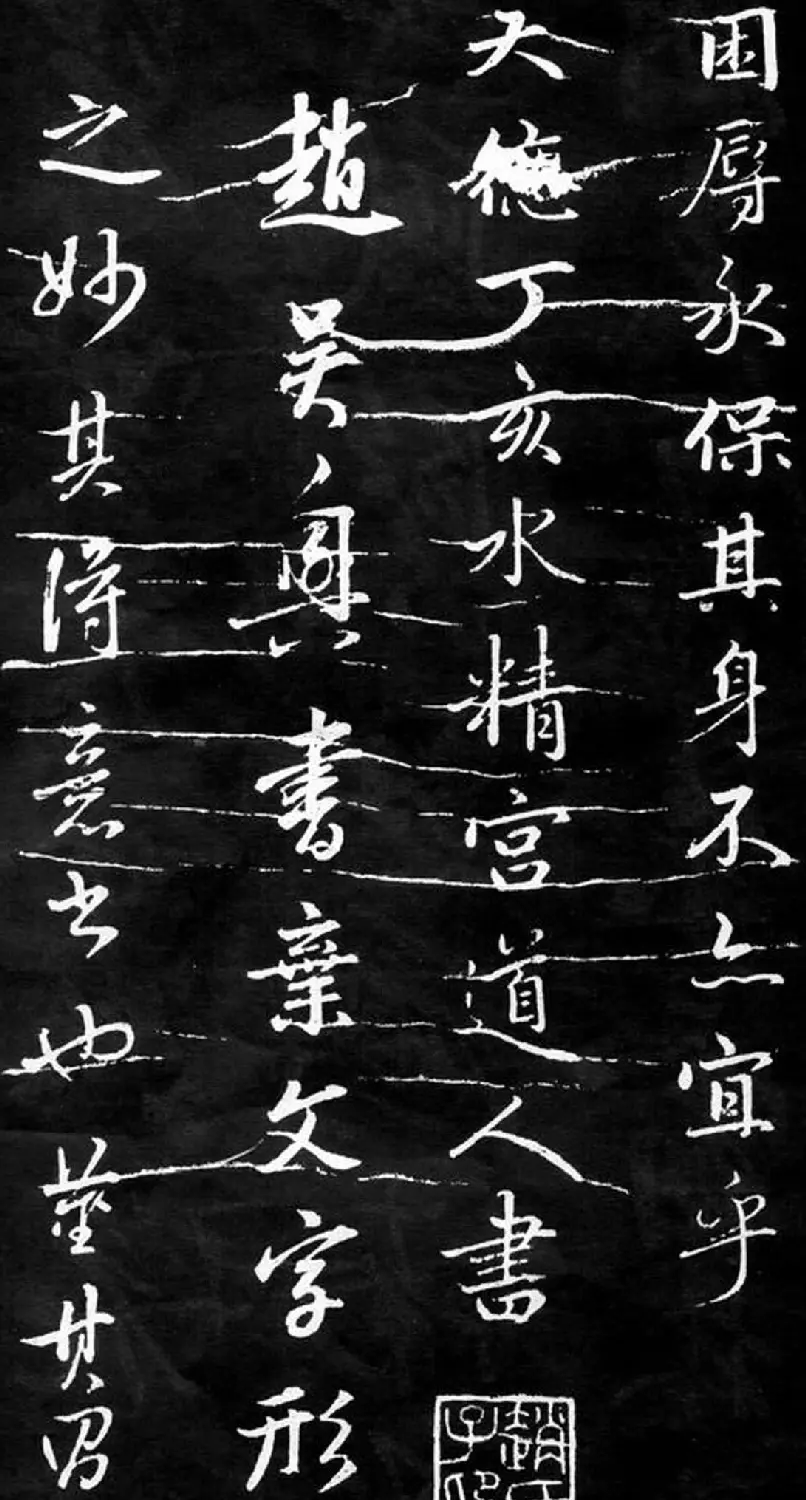 困辱永保其身不亦宜乎
天德丁亥水精宫道人書
趙吴興書棄文字形
之妙其得意书也董其昌
趙氏子